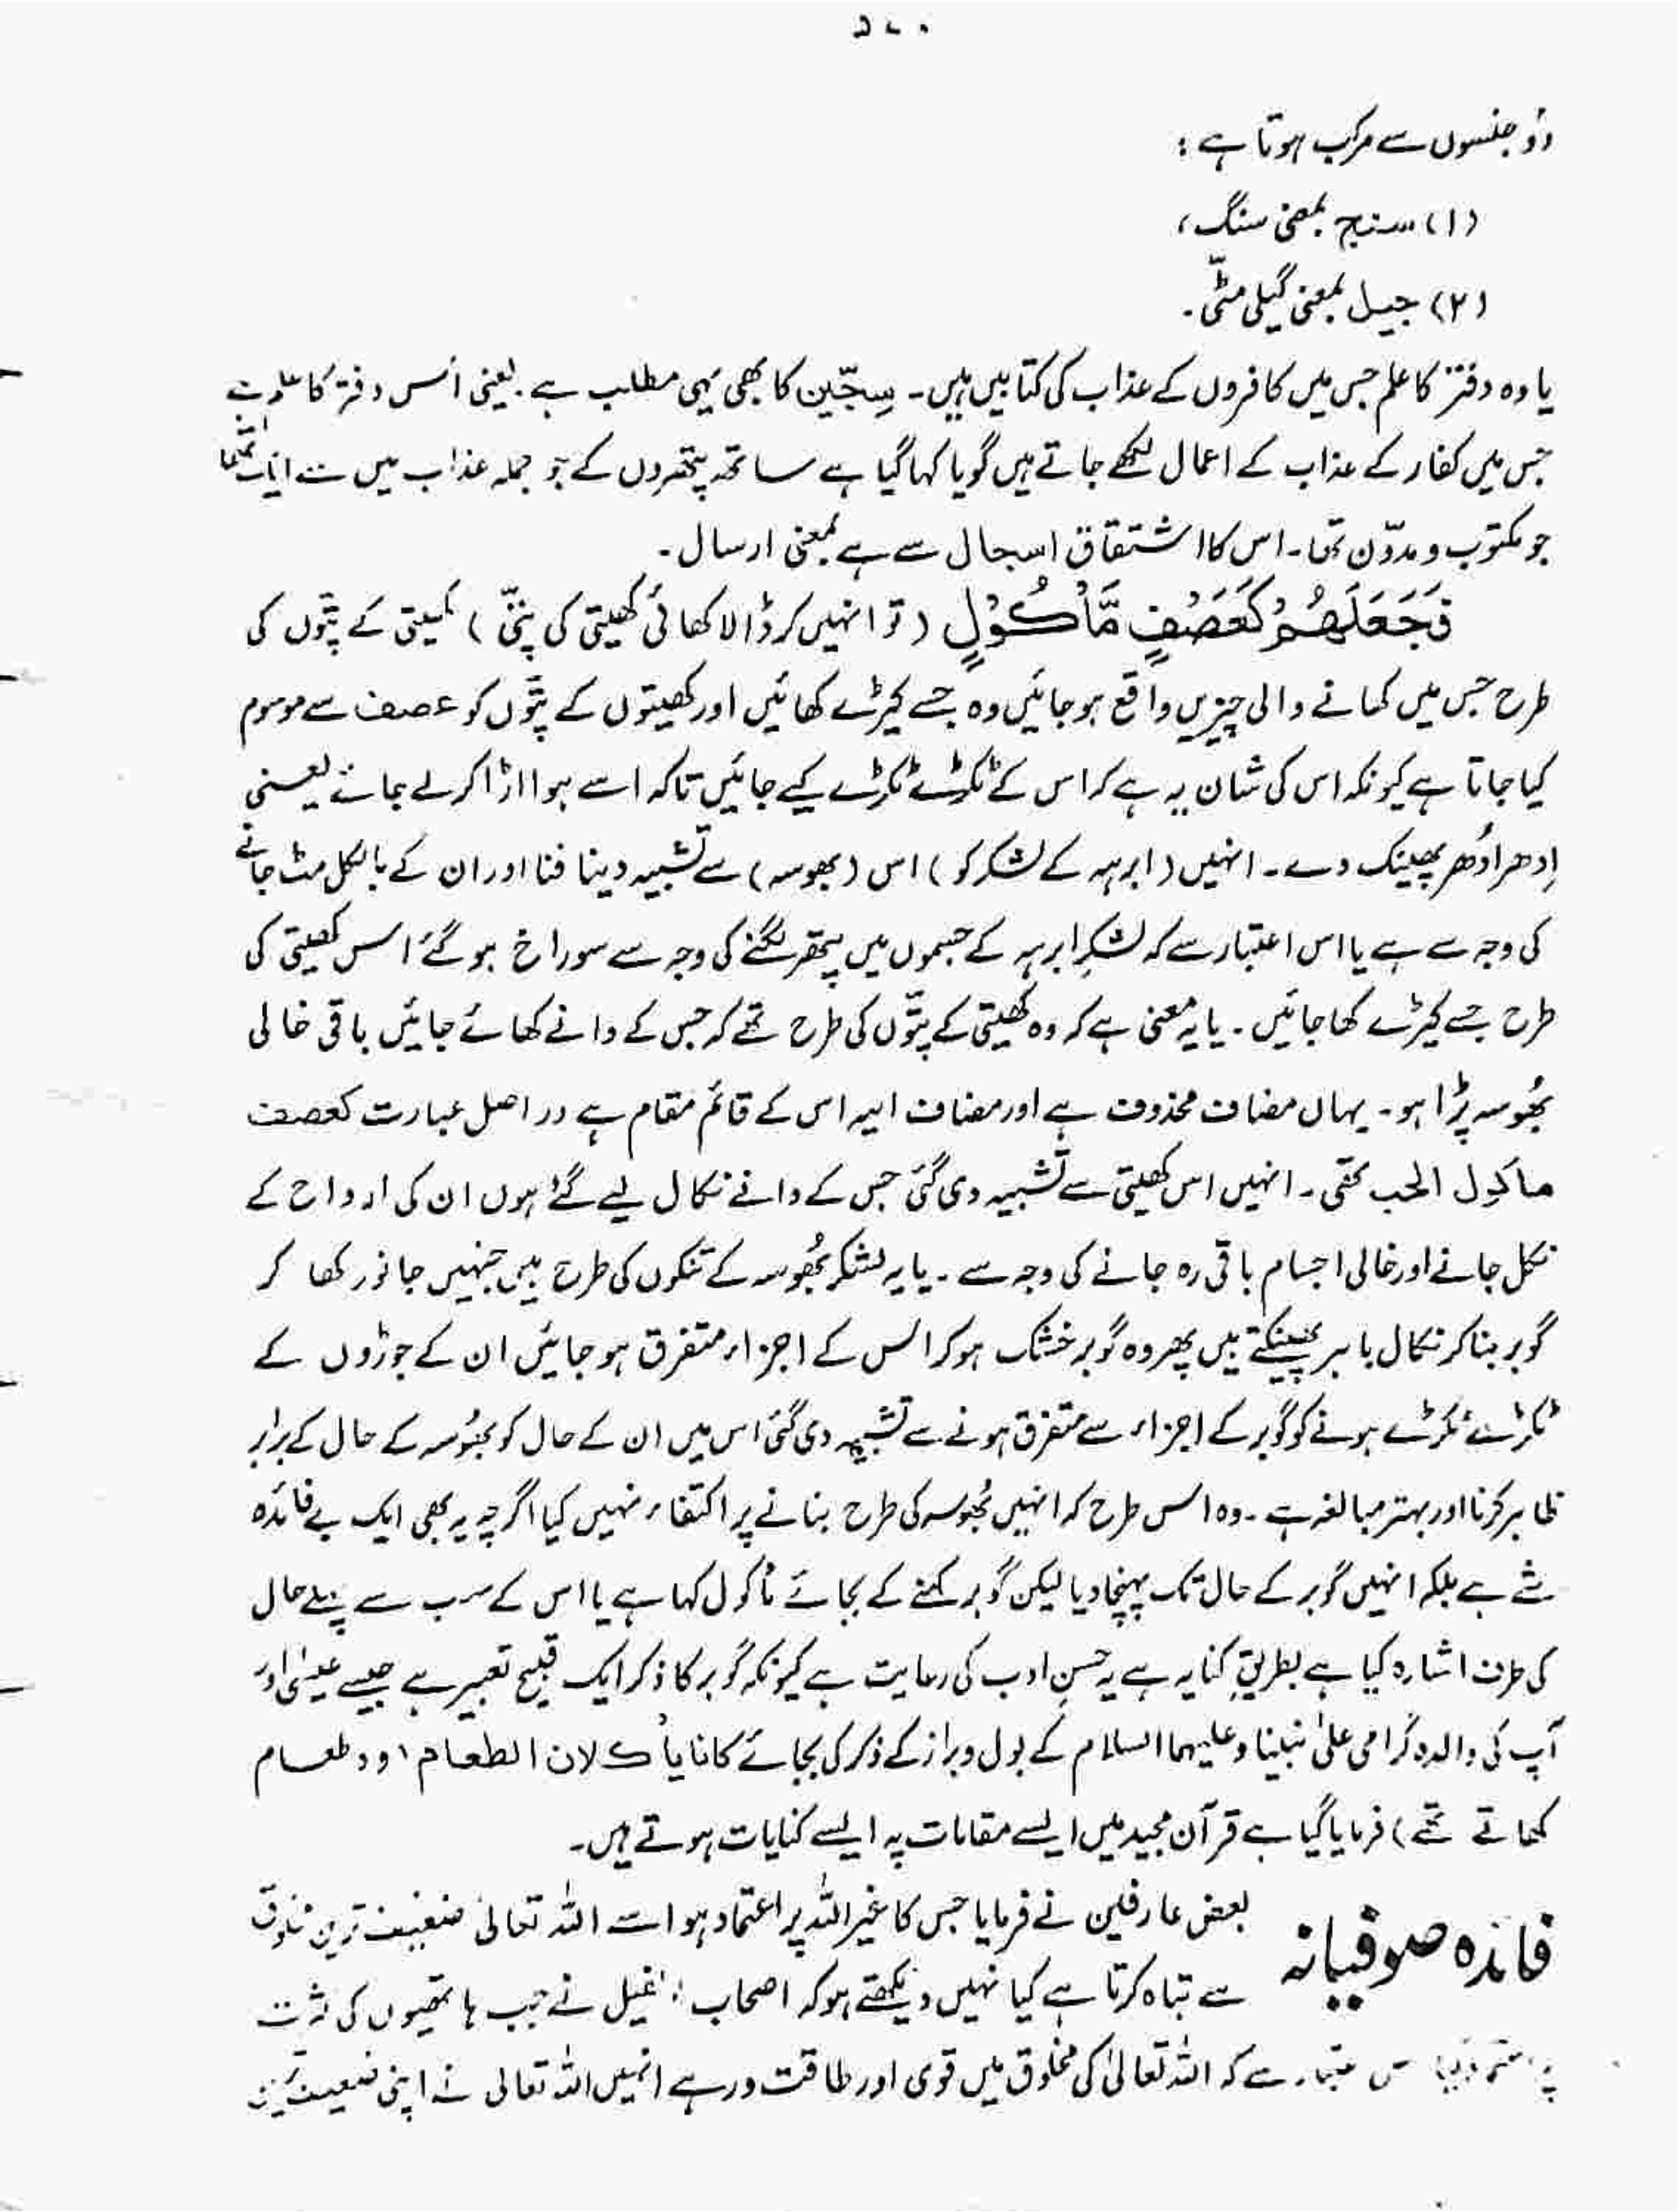 ۵۷۰
دو جنسوں سے مرکب ہوتا ہے :
(۱) سنج بمعنی سنگ ،
(۲) جیل بمعنی گیلی مٹّی ۔
یا وہ دفتر کا علم جس میں کافروں کے عذاب کی کتابیں ہیں ۔ سِجّین کا بھی یہی مطلب ہے ۔ یعنی اُس دفتر کا علم ہے
جس میں کفار کے عذاب کے اعمال لکھے جاتے ہیں گویا کہا گیا ہے ساتھ پتھروں کے جو جملہ عذاب میں سے ایک تھا
جو مکتوب و مدوّن تھا ۔ اس کا اشتقاق اسجال سے ہے بمعنی ارسال ۔
فَجَعَلَهُمْ كَعَصْفٍ مَّأْكُوْلٍ ( تو انہیں کر ڈالا کھائی کھیتی کی پتّی ) کھیتی کے پتّوں کی
طرح جس میں کھانے والی چیزیں واقع ہو جائیں وہ جسے کیڑے کھائیں اور کھیتوں کے پتّوں کو عصف سے موسوم
کیا جاتا ہے کیونکہ اس کی شان یہ ہے کہ اس کے ٹکڑے ٹکڑے کیے جائیں تاکہ اسے ہوا اڑا کر لے جائے یعنی
اِدھر اُدھر پھینک دے ۔ انہیں ( ابرہہ کے لشکر کو ) اس ( بھوسہ ) سے تشبیہ دینا فنا اور ان کے بالکل مٹ جانے
کی وجہ سے ہے یا اس اعتبار سے کہ لشکرِ ابرہہ کے جسموں میں پتھر لگنے کی وجہ سے سوراخ ہو گئے اس کھیتی کی
طرح جسے کیڑے کھا جائیں ۔ یا یہ معنی ہے کہ وہ کھیتی کے پتّوں کی طرح تھے کہ جس کے دانے کھائے جائیں باقی خالی
بھُوسہ پڑا ہو ۔ یہاں مضاف محذوف ہے اور مضاف الیہ اس کے قائم مقام ہے در اصل عبارت کعصف
ماکول الحب تھی ۔ انہیں اس کھیتی سے تشبیہ دی گئی جس کے دانے نکال لیے گئے ہوں ان کی ارواح کے
نکل جانے اور خالی اجسام باقی رہ جانے کی وجہ سے ۔ یا یہ لشکر بھُوسہ کے تنکوں کی طرح ہیں جنہیں جانور کھا کر
گوبر بنا کر نکال باہر پھینکتے ہیں پھر وہ گوبر خشک ہو کر اس کے اجزاء متفرق ہو جائیں ان کے جوڑوں کے
ٹکڑے ٹکڑے ہونے کو گوبر کے اجزاء سے متفرق ہونے سے تشبیہ دی گئی اس میں ان کے حال کو بھُوسہ کے حال کے برابر
ظاہر کرنا اور بہتر مبالغہ ہے ۔ وہ اس طرح کہ انہیں بھُوسہ کی طرح بنانے پر اکتفاء نہیں کیا اگرچہ یہ بھی ایک بے فائدہ
شے ہے بلکہ انہیں گوبر کے حال تک پہنچا دیا لیکن گوبر کہنے کے بجائے مأکول کہا ہے یا اس کے سب سے پہلے حال
کی طرف اشارہ کیا ہے بطریقِ کنایہ ہے یہ حسنِ ادب کی رعایت ہے کیونکہ گوبر کا ذکر ایک قبیح تعبیر ہے جیسے عیسٰی اور
آپ کی والدہ گرامی علیٰ نبینا و علیہما السلام کے بول و براز کے ذکر کی بجائے کانا یأکلان الطعام ( وہ طعام
کھاتے تھے ) فرمایا گیا ہے قرآن مجید میں ایسے مقامات پہ ایسے کنایات ہوتے ہیں ۔
فائدہ صوفیانہ بعض عارفین نے فرمایا جس کا غیر اللہ پر اعتماد ہو اسے اللہ تعالیٰ ضعیف ترین مخلوق
سے تباہ کرتا ہے کیا نہیں دیکھتے ہو کہ اصحاب الفیل نے جب ہاتھیوں کی کثرت
پر کہ اللہ تعالیٰ کی مخلوق میں قوی اور طاقت ور ہے انہیں اللہ تعالیٰ نے اپنی ضعیف ترین